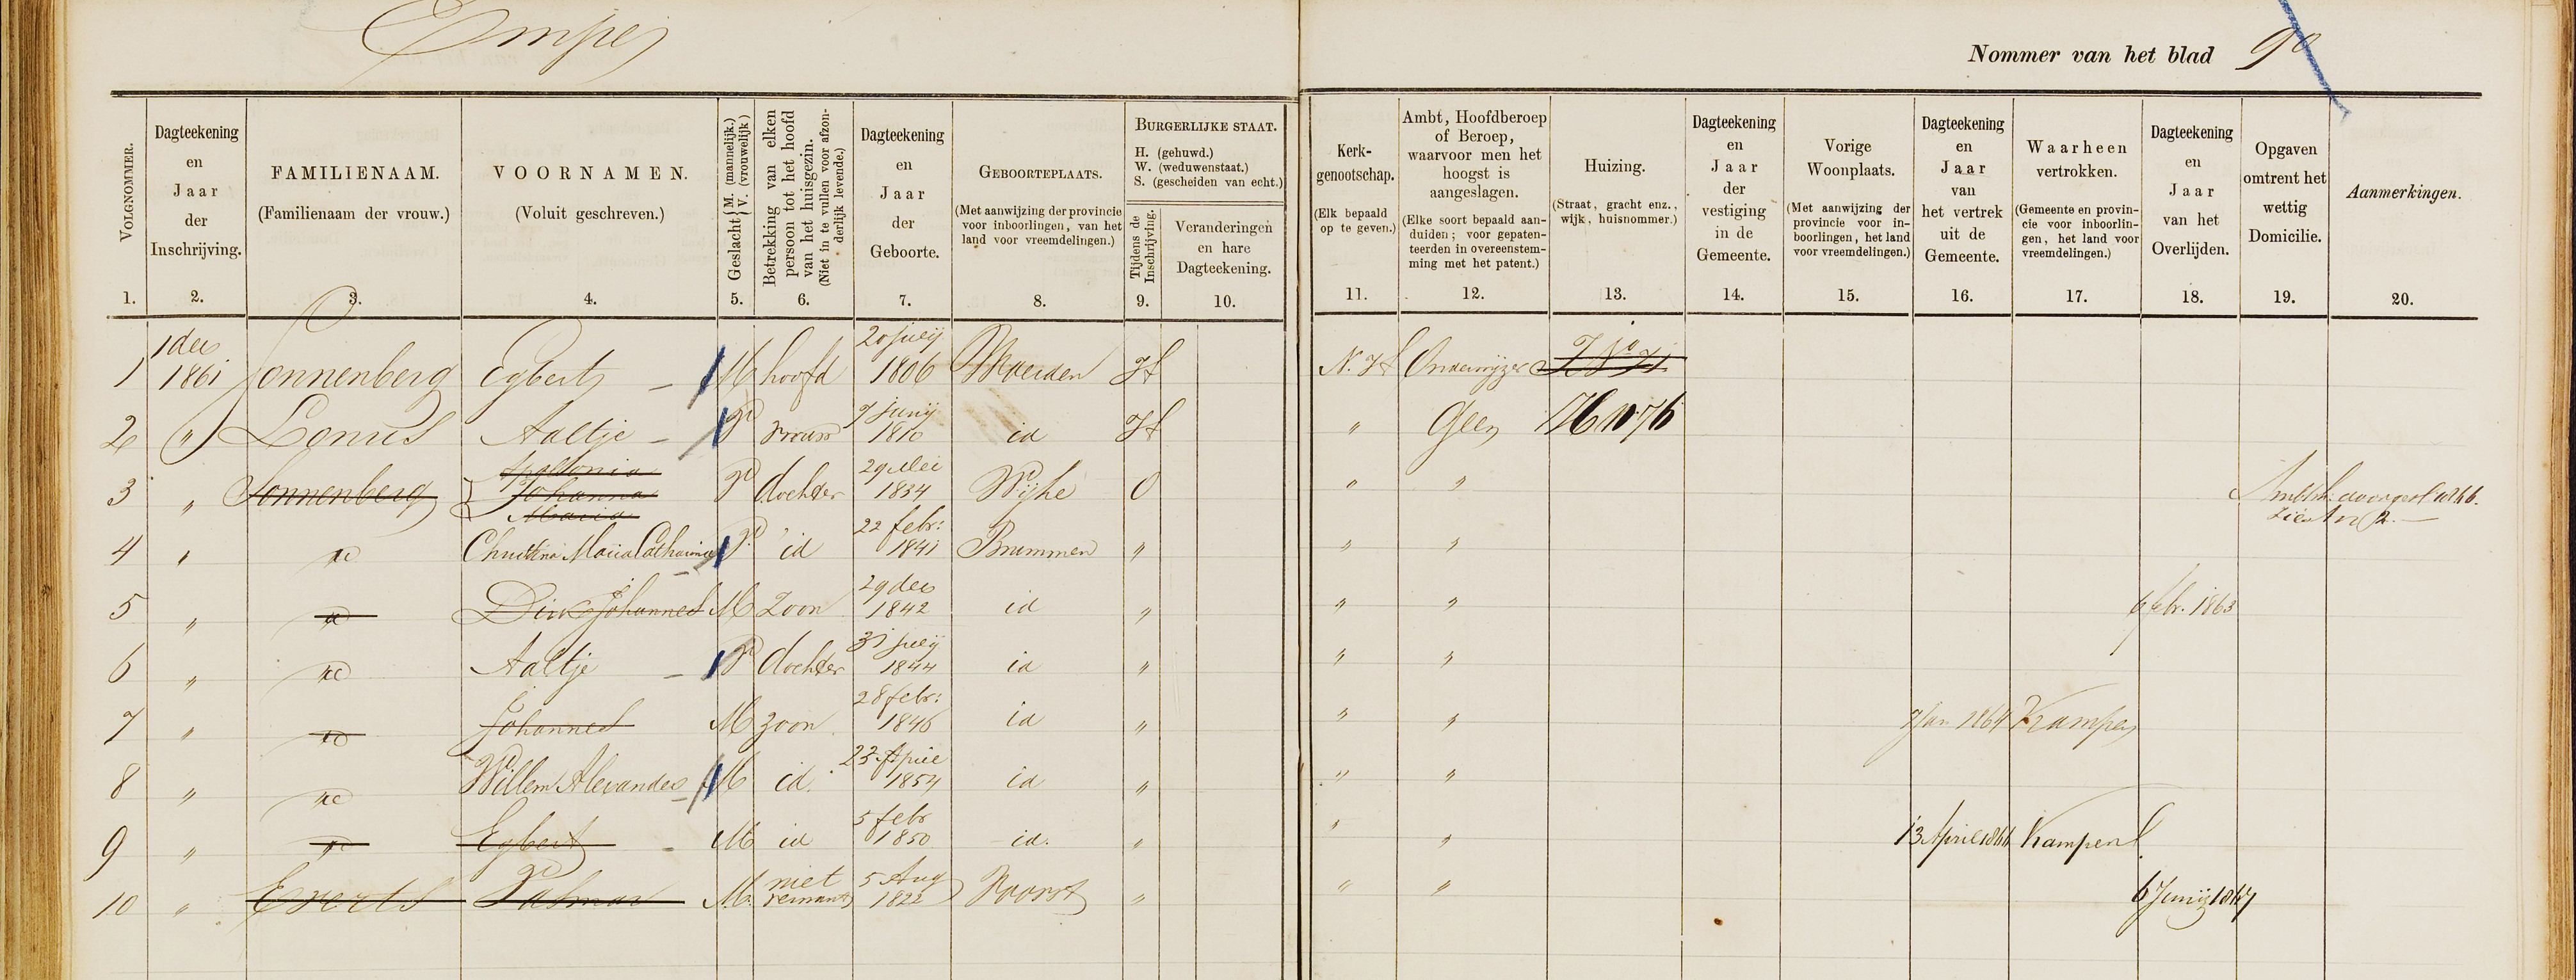 Empe
Nommer van het blad 90
VOLGNOMMER.
1.
Dagteekening
en
Jaar
der
Inschrijving.
2.
FAMILIENAAM.
(Familienaam der vrouw.)
3.
VOORNAMEN.
(Voluit geschreven.)
4.
Geslacht { M. (mannelijk.) V. (vrouwelijk)
5.
Betrekking van elken
persoon tot het hoofd
van het huisgezin.
(Niet in te vullen voor afzon-
derlijk levende.)
6.
Dagteekening
en
Jaar
der
Geboorte.
7.
GEBOORTEPLAATS.
(Met aanwijzing der provincie
voor inboorlingen, van het
land voor vreemdelingen.)
8.
BURGERLIJKE STAAT.
H. (gehuwd.)
W. (weduwenstaat.)
S. (gescheiden van echt.)
Tijdens de
Inschrijving.
9.
Veranderingen
en hare
Dagteekening.
10.
Kerk-
genootschap.
(Elk bepaald
op te geven.)
11.
Ambt, Hoofdberoep
of Beroep,
waarvoor men het
hoogst is
aangeslagen.
(Elke soort bepaald aan-
duiden; voor gepaten-
teerden in overeenstem-
ming met het patent.)
12.
Huizing.
(Straat, gracht enz.,
wijk, huisnommer.)
13.
Dagteekening
en
Jaar
der
vestiging
in de
Gemeente.
14.
Vorige
Woonplaats.
(Met aanwijzing der
provincie voor in-
boorlingen, het land
voor vreemdelingen.)
15.
Dagteekening
en
Jaar
van
het vertrek
uit de
Gemeente.
16.
Waarheen
vertrokken.
(Gemeente en provin-
cie voor inboorlin-
gen, het land voor
vreemdelingen.)
17.
Dagteekening
en
Jaar
van het
Overlijden.
18.
Opgaven
omtrent het
wettig
Domicilie.
19.
Aanmerkingen.
20.
1 1 dec 1861 Sonnenberg Egbert M hoofd 20 julij 1806 H N. H Onderwijzer
2 " Lonus Aaltje V vrouw 7 junij 1810 id H " Geen
3 " Sonnenberg Apollonia Johanna Maria V dochter 29 Mei 1834 Wijhe O " "
4 " id Christina Maria Catharina V. id 22 febr: 1841 Brummen " " "
5 " id Dirk Johannes M Zoon 29 dec 1842 id " " " 6 febr. 1863
6 " id Aaltje V dochter 31 julij 1844 id " " "
7 " id Johannes M zoon 28 febr: 1846 id " " " 7 Jan 1864 Kampen
8 " id Willem Alexander M id. 23 April 1854 id " " "
9 " id Egbert M id 5 febr 1850 id. " " " 13 April 1866 Kampen
10 " Everts M. niet 5 Aug 1822 Voorst " " " 6 Junij 1867